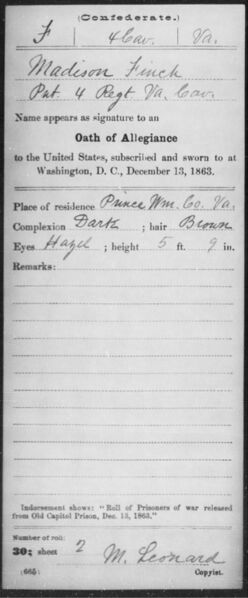 (Confederate.)
F | 4 Cav. | Va.
Madison Finch
Pvt. 4 Regt. Va. Cav.
Name appears as signature to an
Oath of Allegiance
to the United States, subscribed and sworn to at
Washington, D. C., December 13, 1863.
Place of residence Prince Wm. Co. Va.
Complexion Dark ; hair Brown
Eyes Hazel ; height 5 ft. 9 in.
Remarks:
Indorsement shows: "Roll of Prisoners of war released
from Old Capitol Prison, Dec. 13, 1863."
Number of roll:
30; sheet 2 M. Leonard
(665) Copyist.